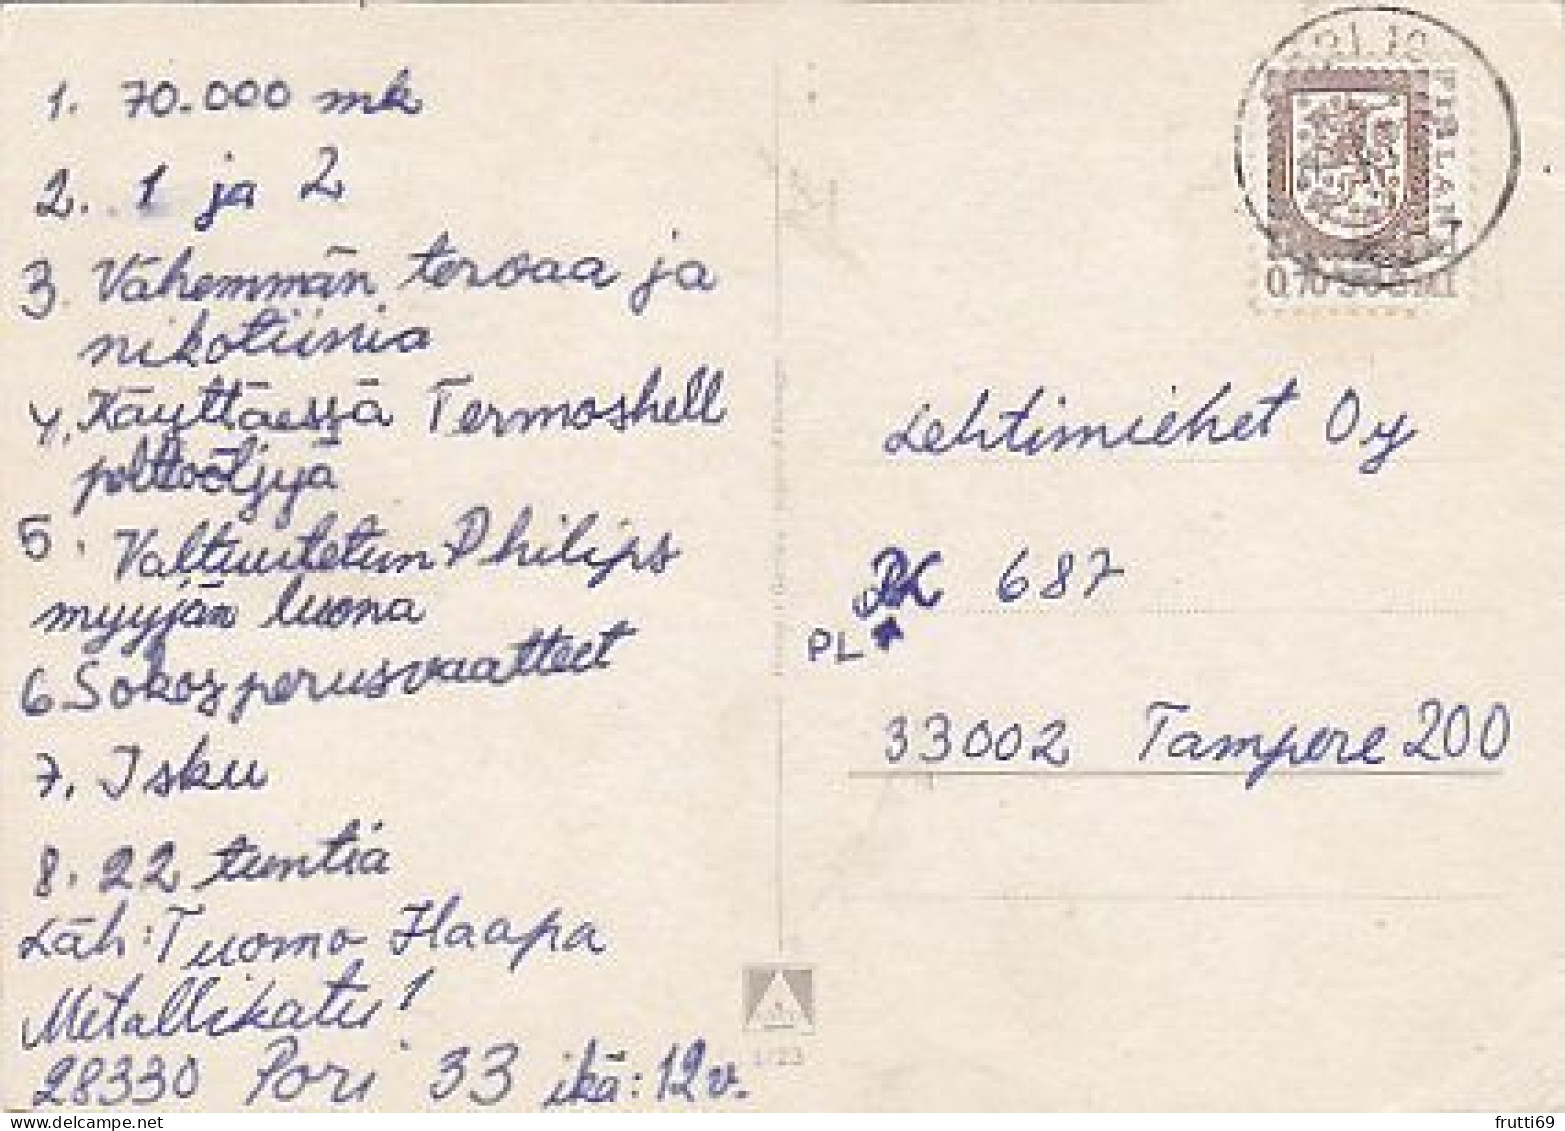 1. 70.000 mk
2. 1 ja 2
3. Vähemmän tervaa ja
nikotiinia
4. Käyttäessä Termoshell
polttoöljyä
5. Valtuutetun Philips
myyjän luona
6 Sokos perusvaatteet
7. Isku
8. 22 tuntia
Läh: Tuomo Haapa
Metallikatu 1
28330 Pori 33 ikä: 12 v.
FINLAND
0,70 SUOMI
Lehtimiehet Oy
PL 687
33002 Tampere 200
1723
frutti69